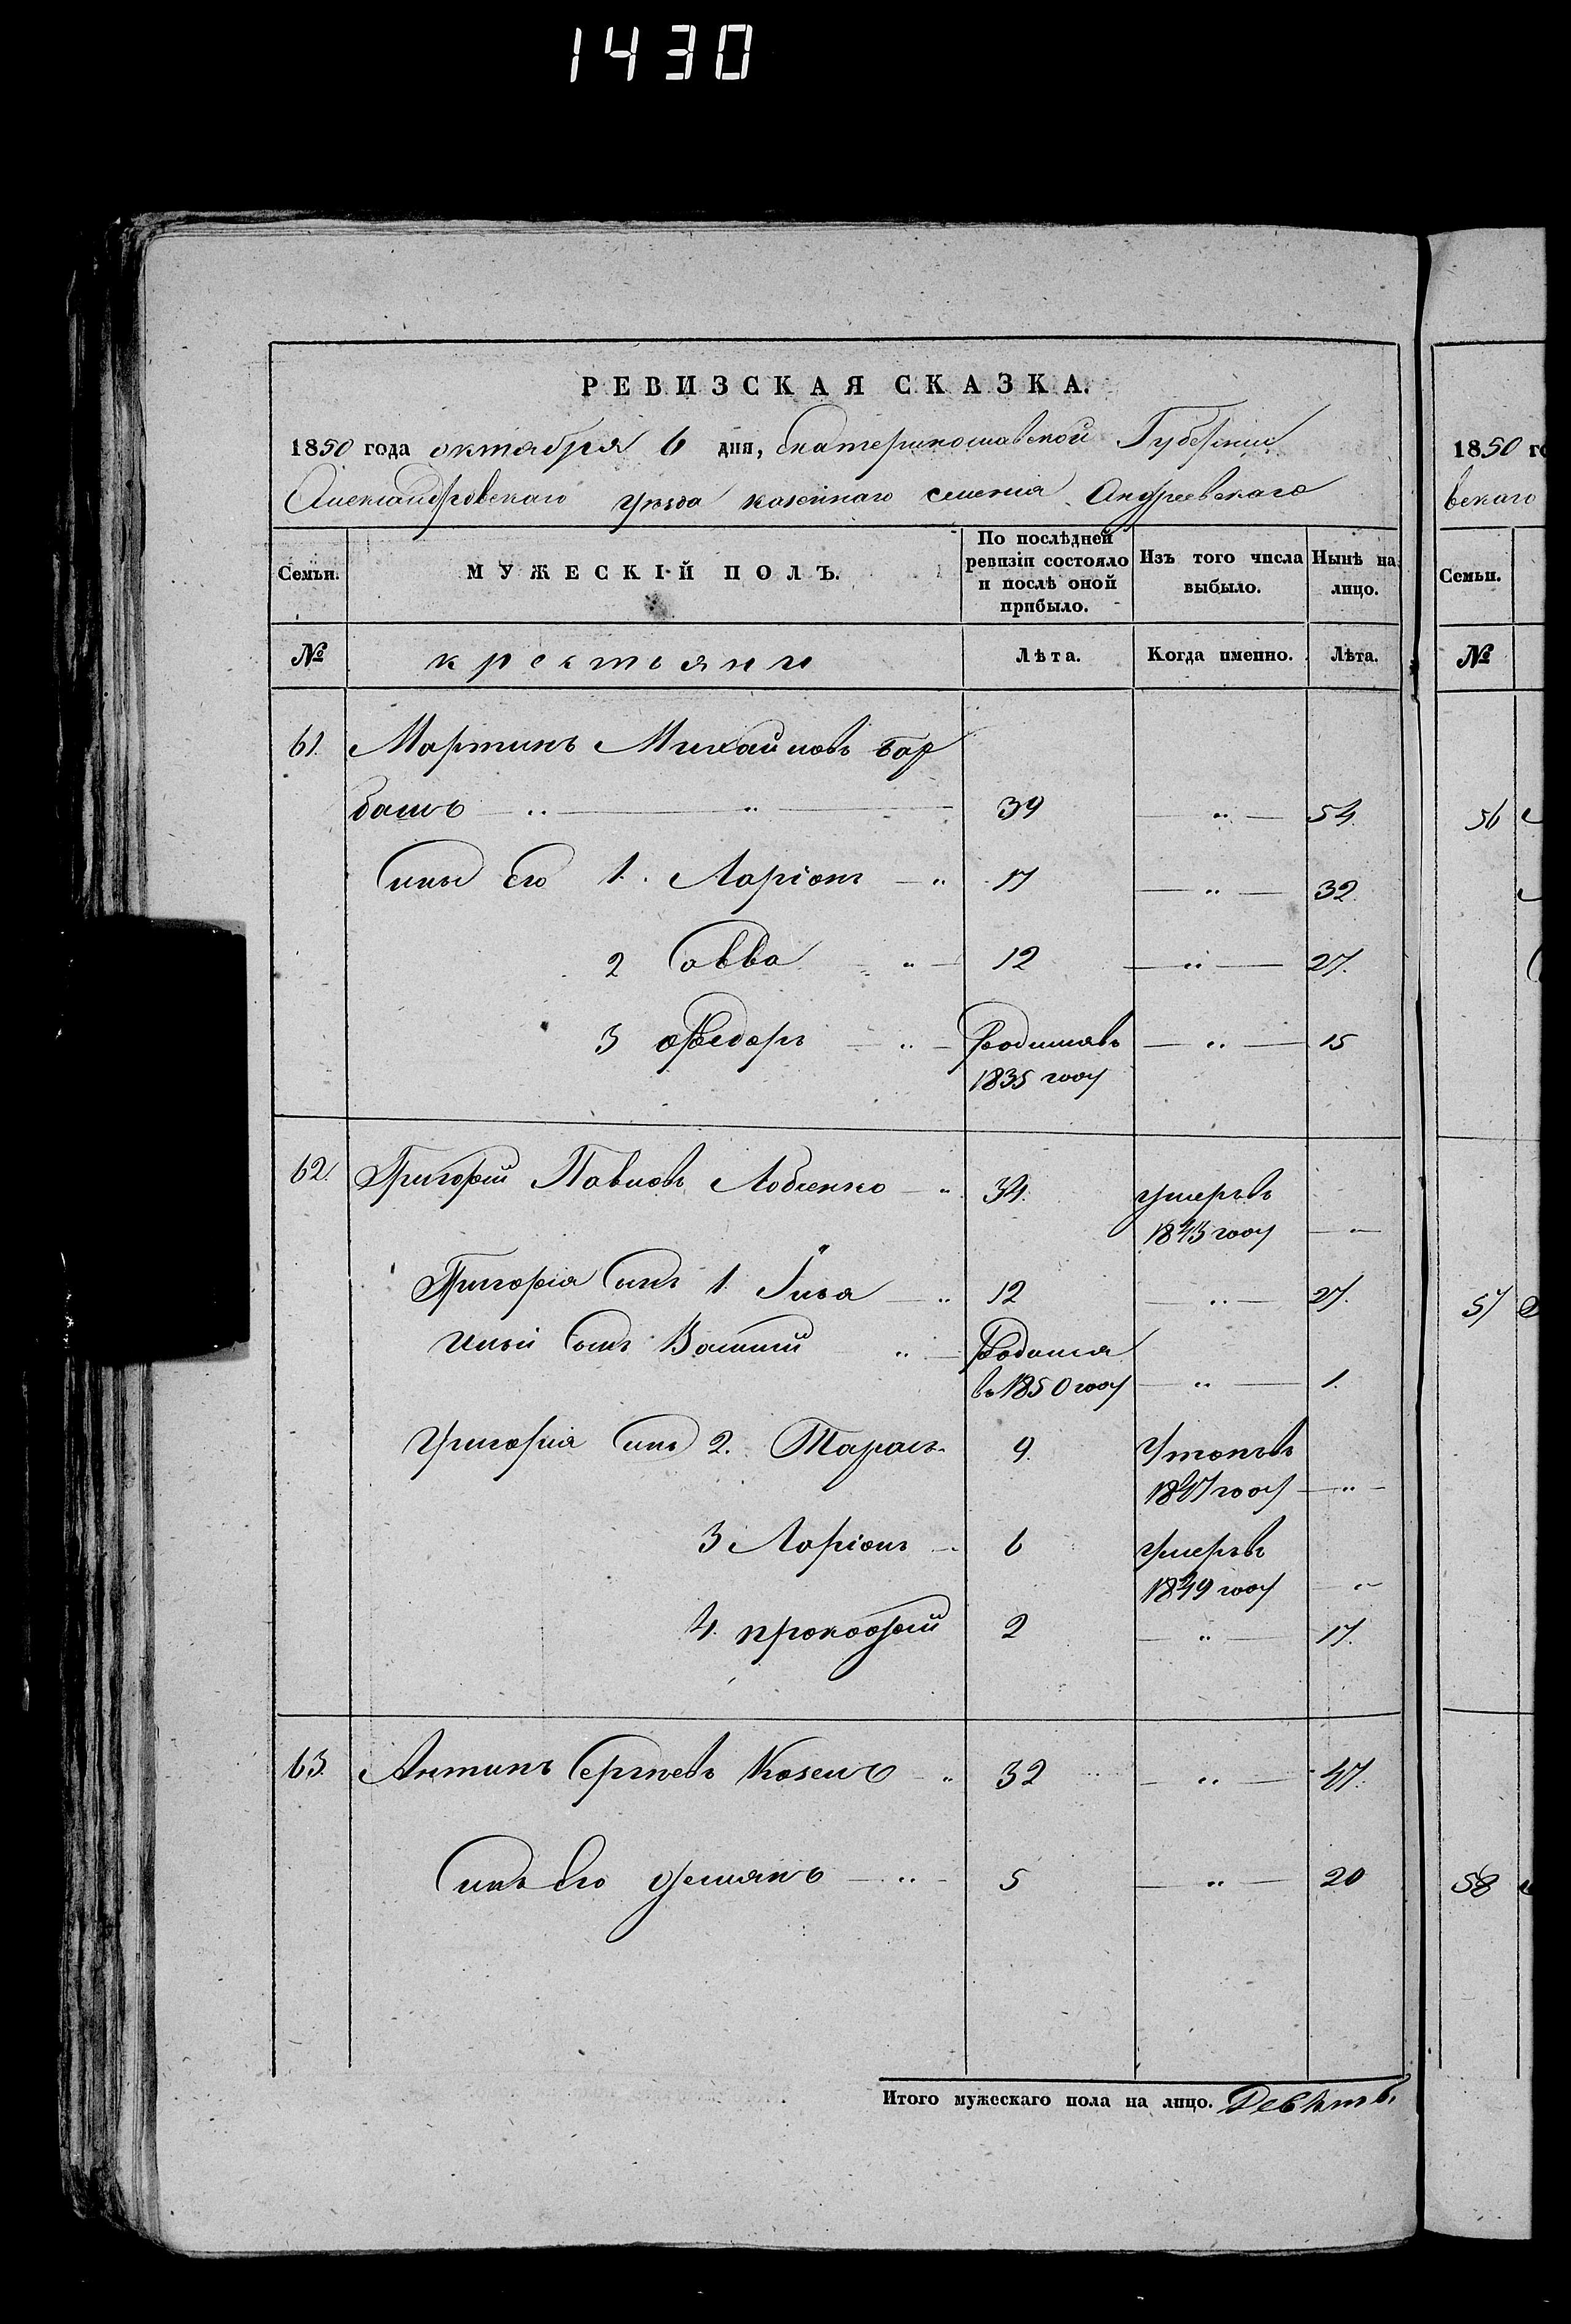 1430
РЕВИЗСКАЯ СКАЗКА.
1850 года октября 6 дня, Екатеринославской Губернии
Александровскаго уезда казеннаго селения Андреевскаго
Семьи. МУЖЕСКІЙ ПОЛЪ. По послѣдней ревизіи состояло и послѣ оной прибыло. Изъ того числа выбыло. Нынѣ на лицо.
№ крестьяни Лѣта. Когда именно. Лѣта.
61. Мартинъ Михайловъ Бар
башъ 39 " 54.
Сины Его 1. Ларіонъ " 17 " 32.
2 Савва " 12 " 27.
3 Федоръ " Родилсявъ " 15
1835 году
62. Григорий Павловъ Лобченко " 34. умеръвъ
1843 году "
Григория Синъ 1. Илья " 12 " 27.
Ильи Сынъ Василий " Родился
въ 1850 году " 1.
Григория Синъ 2. Тарасъ 9. Утопъвъ
1847 году "
3 Ларіонъ 6 умеръвъ
1849 году "
4. прокофий 2 " 17.
63. Антипъ Сергѣевъ Козелъ " 32 " 47.
Синъ Его Демянъ " 5 " 20
Итого мужескаго пола на лицо. Девѣть.
1850 го
вскаго
Семьи.
№
56
57
58